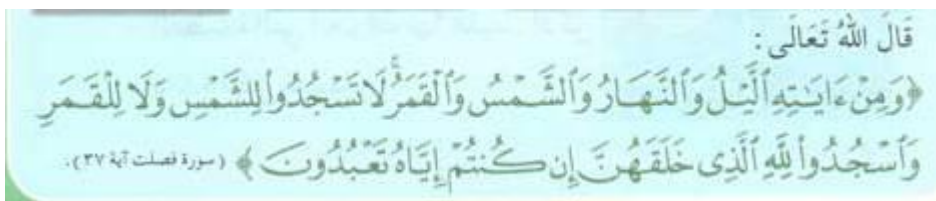 قَالَ اللهُ تَعَالَى :
﴿وَمِنْ ءَايَٰتِهِ ٱلَّيْلُ وَٱلنَّهَارُ وَٱلشَّمْسُ وَٱلْقَمَرُۚ لَا تَسْجُدُوا۟ لِلشَّمْسِ وَلَا لِلْقَمَرِ
وَٱسْجُدُوا۟ لِلَّهِ ٱلَّذِى خَلَقَهُنَّ إِن كُنتُمْ إِيَّاهُ تَعْبُدُونَ ﴾ (سورة فصلت آية ٣٧).